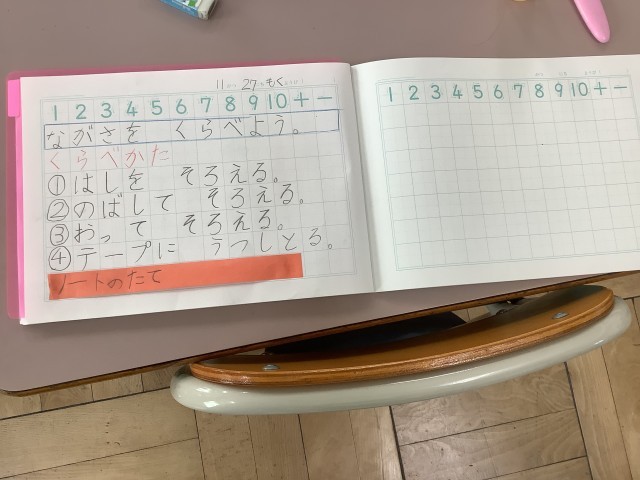 11 27 もく
1 2 3 4 5 6 7 8 9 10 + −
ながさを くらべよう。
くらべかた
①はしを そろえる。
②のばして そろえる。
③おって そろえる。
④テープに うつしとる。
ノートのたて
1 2 3 4 5 6 7 8 9 10 + −